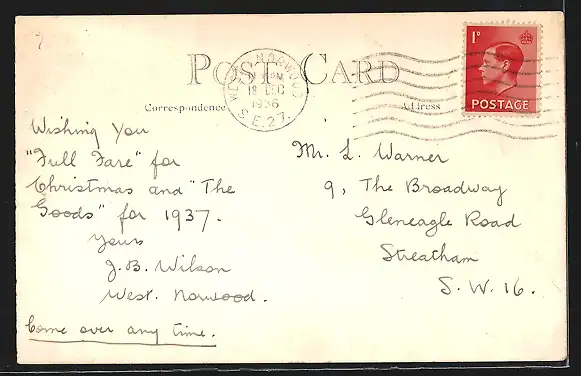 1D
POSTAGE
POST CARD
WEST NORWOOD
18 DEC
1936
S.E.27.
Correspondence
Address
Wishing You
"Full Fare" for
Christmas and "The
Goods" for 1937.
Yours
J. B. Wilson
West. Norwood.
Come over any time.
Mr. L. Warner
9, The Broadway
Gleneagle Road
Streatham
S. W. 16.